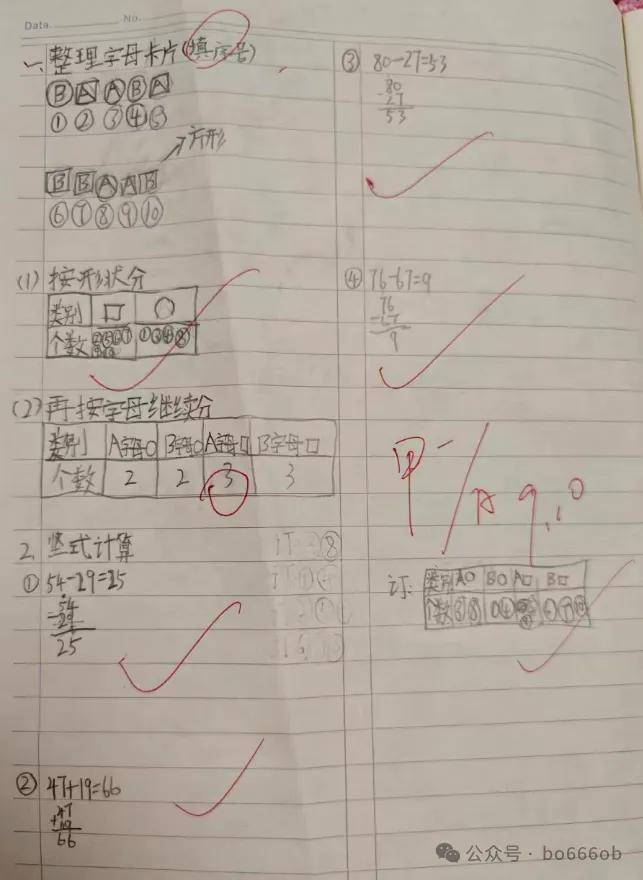 Data. No.
一、整理字母卡片(填序号)
B A A B A
① ② ③ ④ ⑤
方形
B B A A B
⑥ ⑦ ⑧ ⑨ ⑩
(1) 按形状分
类别 □ ○
个数 ①③④⑧
(2) 再按字母继续分
类别 A字母○ B字母○ A字母□ B字母□
个数 2 2 3 3
2. 竖式计算
① 54-29=25
54
-29
25
② 47+19=66
47
+19
66
③ 80-27=53
80
-27
53
④ 76-67=9
76
-67
9
A 9.10
订:
类别 A○ B○ A□ B□
个数 ③⑧ ①④ ⑥⑦⑩
公众号·bo666ob